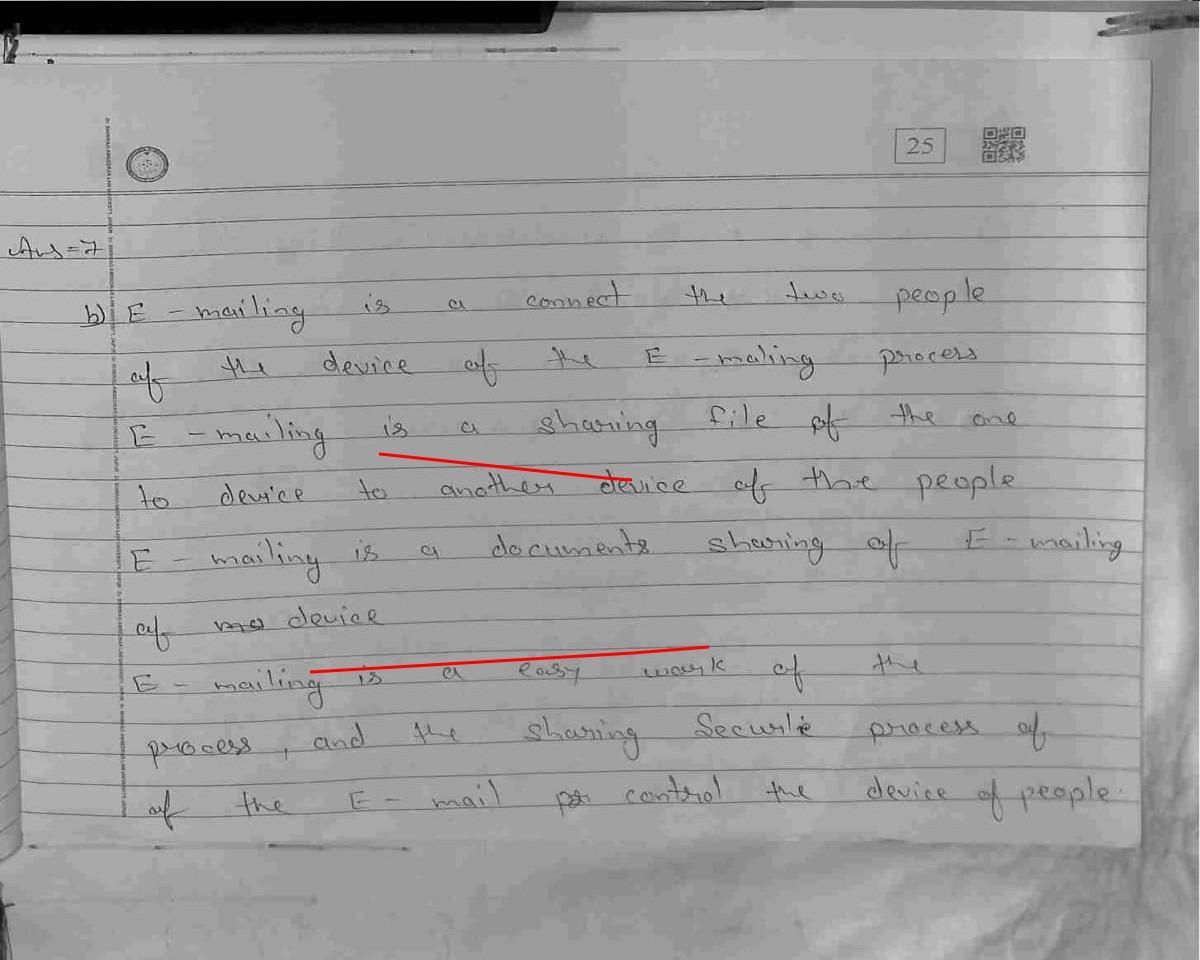 25
Ans=7
b) E-mailing is a connect the two people
of the device of the E-maling process
E-mailing is a sharing file of the one
to device to another device of the people
E-mailing is a documents sharing of E-mailing
of device
E-mailing is a easy work of the
process, and the sharing Secure process of
of the E-mail control the device of people.